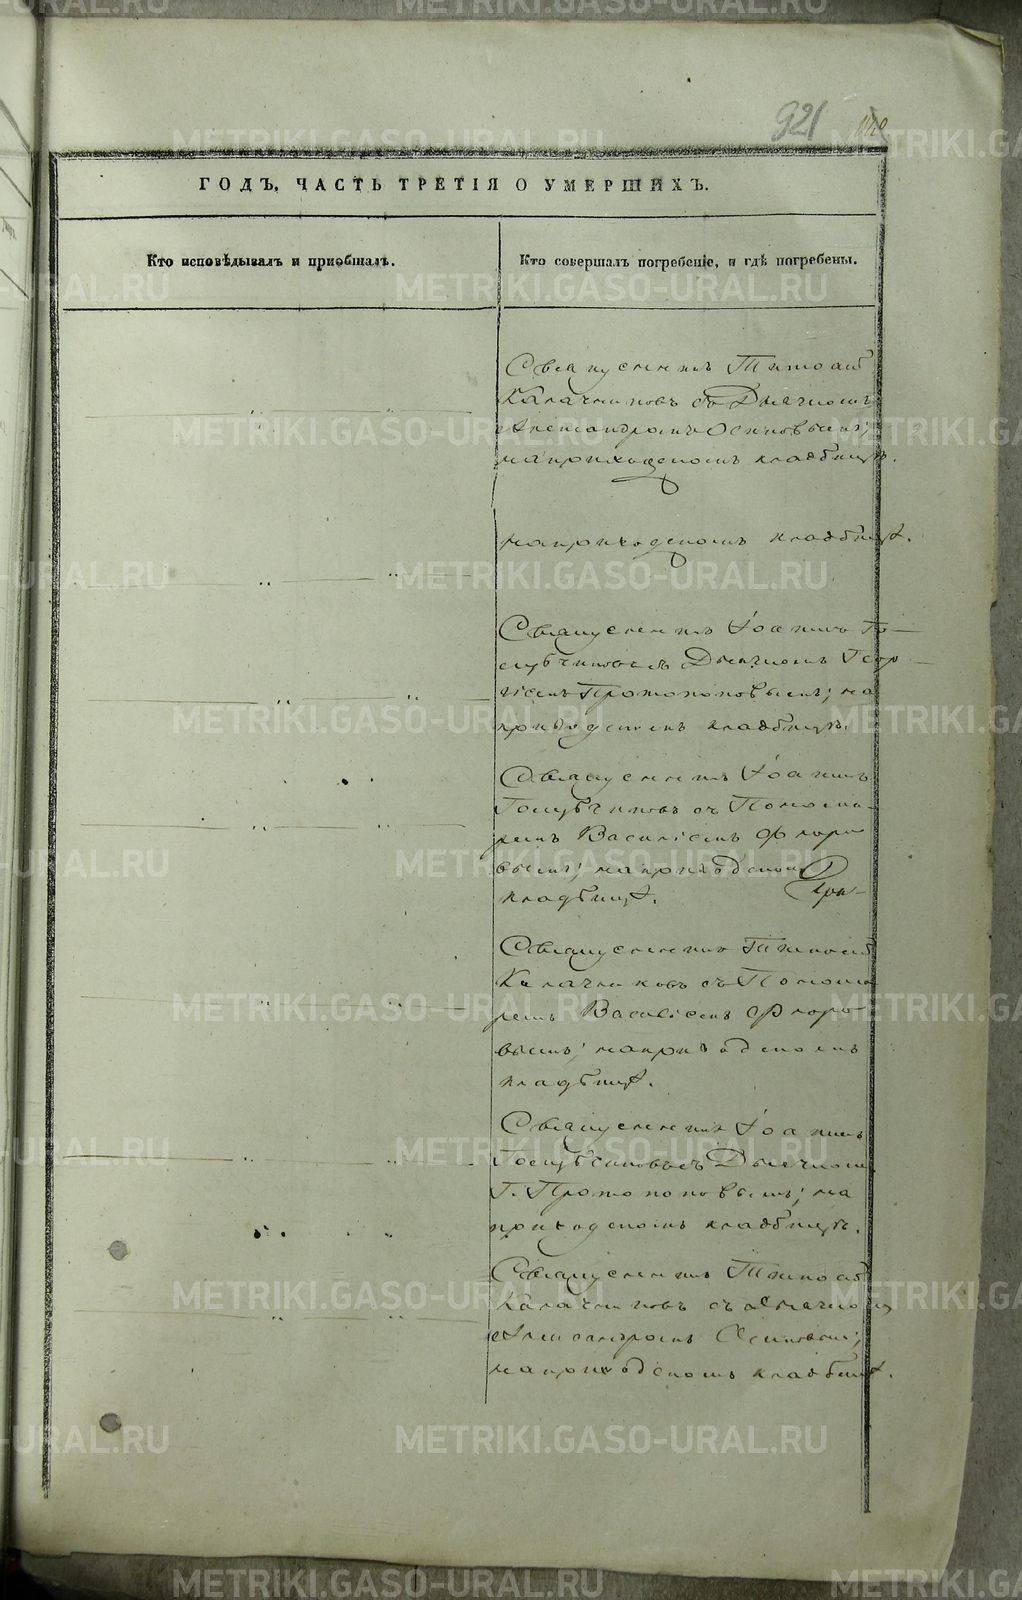 921
ГОДЪ, ЧАСТЬ ТРЕТІЯ О УМЕРШИХЪ.
Кто исповѣдывалъ и приобщалъ.
Кто совершалъ погребеніе, и гдѣ погребены.
Священникъ Тимоѳей
Калачниковъ съ Дьячкомъ
Александромъ Осиповымъ;
на приходскомъ кладбищѣ.
на приходскомъ кладбищѣ.
Священникъ Іоаннъ Го-
лубчиковъ съ Дьячкомъ Геор-
гіемъ Протопоповымъ; на
приходскомъ кладбищѣ.
Священникъ Іоаннъ
Голубчиковъ съ Понома-
ремъ Василіемъ Флоро-
вымъ; на приходскомъ
кладбищѣ.
Священникъ Тимоѳей
Калачниковъ съ Понома-
ремъ Василіемъ Флоро-
вымъ; на приходскомъ
кладбищѣ.
Священникъ Іоаннъ
Голубчиковъ съ Дьячкомъ
Г. Протопоповымъ; на
приходскомъ кладбищѣ.
Священникъ Тимоѳей
Калачниковъ съ Дьячкомъ
Александромъ Осиповым;
на приходскомъ кладбищѣ.
METRIKI.GASO-URAL.RU